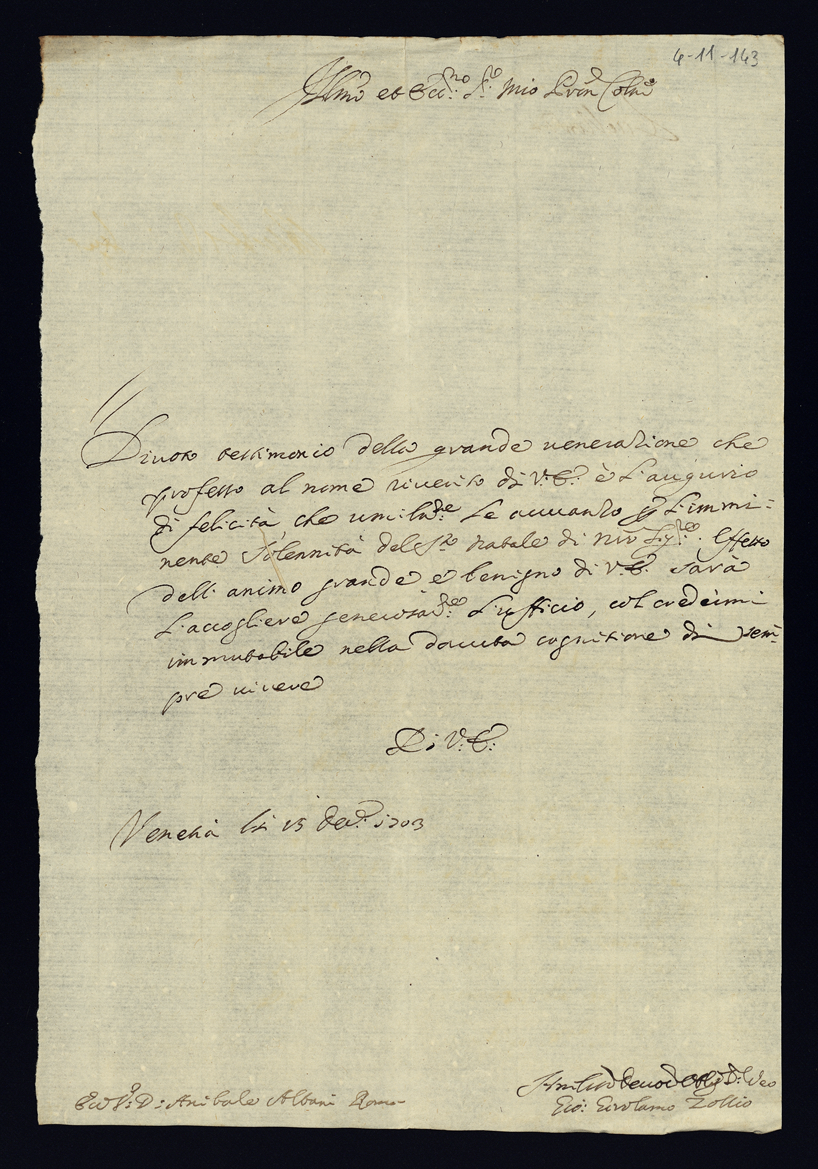 4-11-143
Illmo et Ecc.mo S.r mio Pron Colmo
Divoto testimonio della grande veneratione che
professo al nome riverito di V: E: è l'augurio
di felicità che umilm.te Le avvanzo p l'immi-
nente solennità del S.to Natale di nro Sig.re. Effetto
dell'animo grande e benigno di V: E: sarà
l'accogliere generosam.te l'ufficio, col credermi
immutabile nella dovuta cognitione di sem-
pre vivere
Di V: E:
Venetia li 15 Dec. 1703
D: Anibale Albani Roma
Gio: Girolamo Zollio